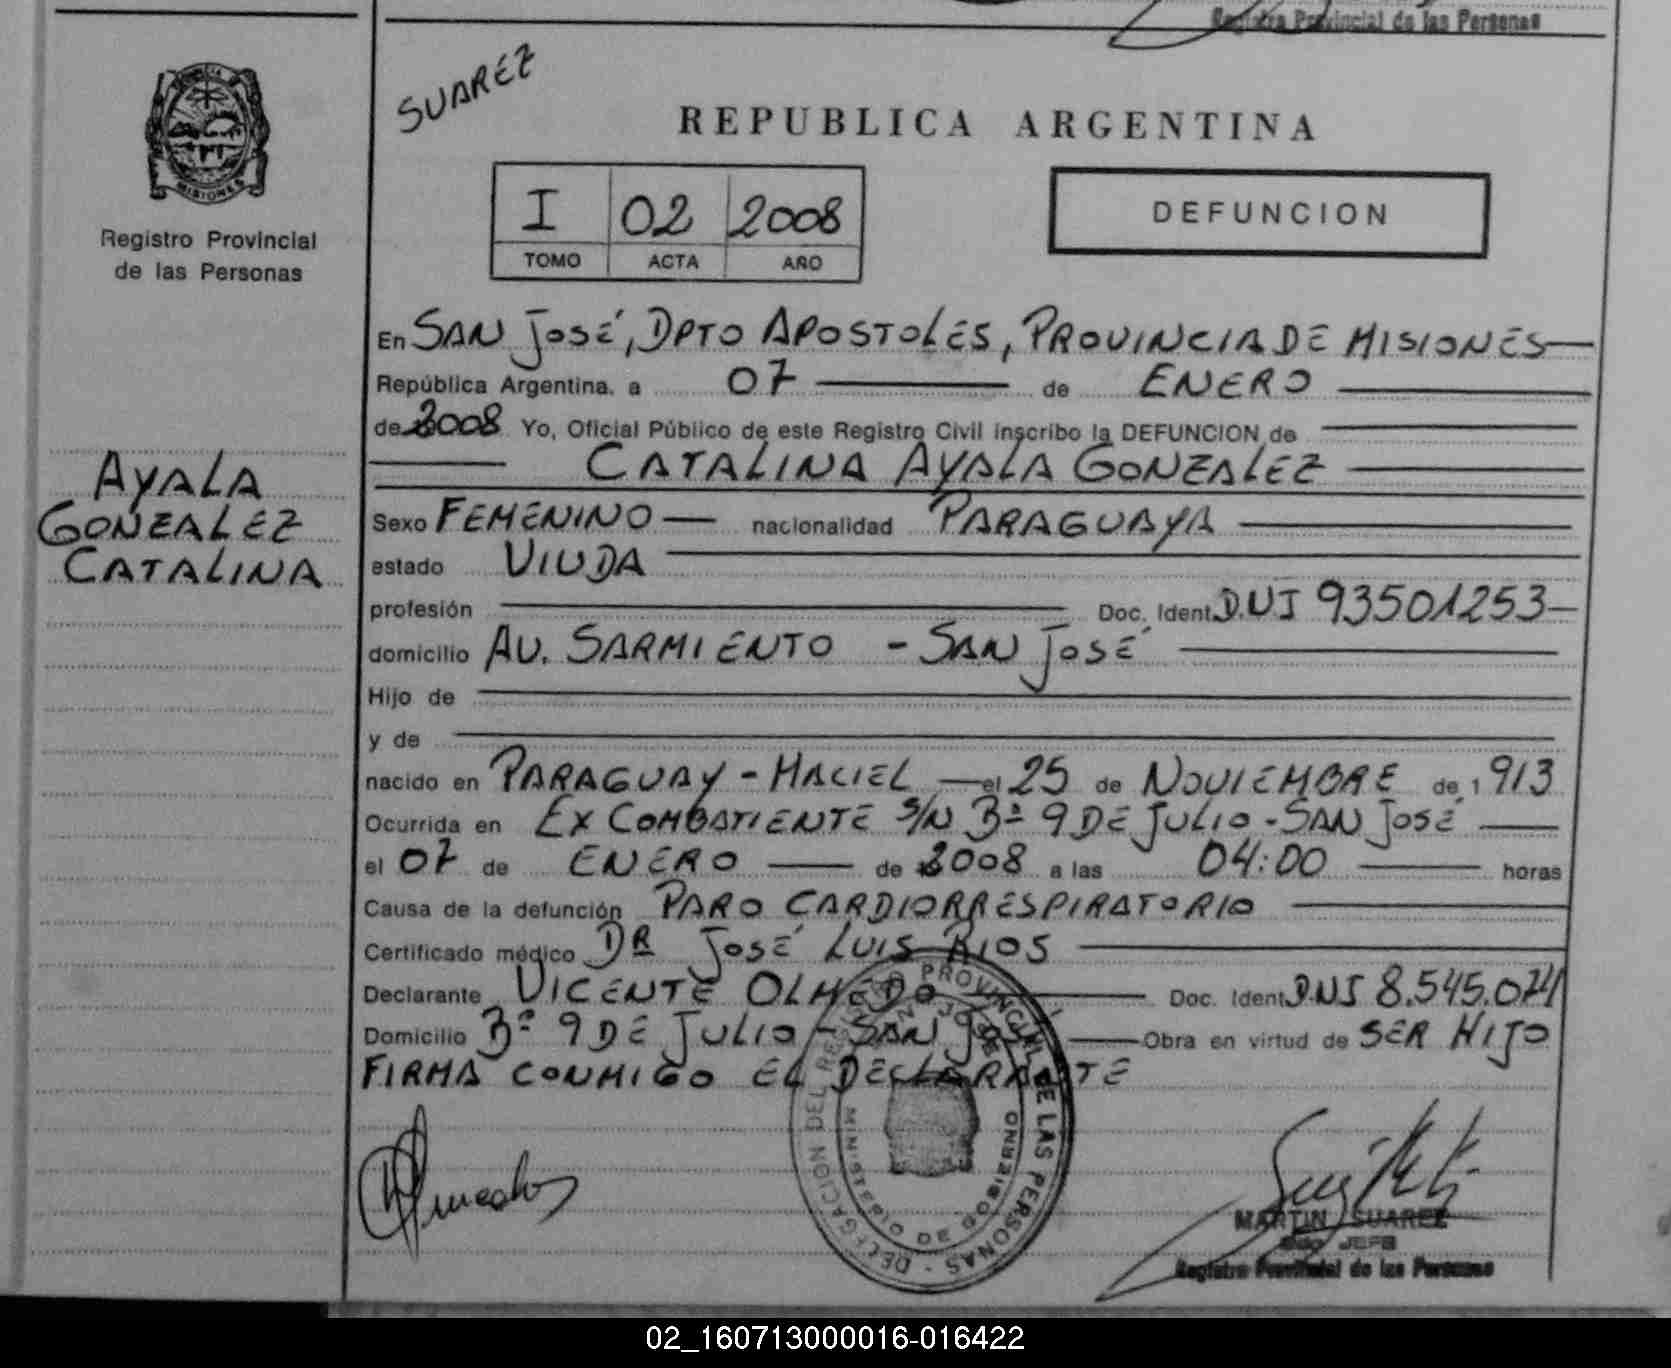 Registra Provincial de las Personas
SUAREZ
REPUBLICA ARGENTINA
MISIONES
Registro Provincial
de las Personas
I 02 2008
TOMO ACTA AÑO
DEFUNCION
En SAN JOSÉ, DPTO APOSTOLES, PROVINCIA DE MISIONES
República Argentina. a 07 de ENERO
de 2008 Yo, Oficial Público de este Registro Civil inscribo la DEFUNCION de
CATALINA AYALA GONZALEZ
AYALA
GONZALEZ
CATALINA
Sexo FEMENINO nacionalidad PARAGUAYA
estado VIUDA
profesión Doc. Ident. D.N.I 93501253
domicilio AV. SARMIENTO - SAN JOSÉ
Hijo de
y de
nacido en PARAGUAY - MACIEL el 25 de NOVIEMBRE de 1 913
Ocurrida en EX COMBATIENTE S/N Bº 9 DE JULIO - SAN JOSÉ
el 07 de ENERO de 2008 a las 04:00 horas
Causa de la defunción PARO CARDIORRESPIRATORIO
Certificado médico DR JOSÉ LUIS RIOS
Declarante VICENTE OLMEDO Doc. Ident. DNI 8.545.074
Domicilio Bº 9 DE JULIO - SAN JOSE Obra en virtud de SER HIJO
FIRMA CONMIGO EL DECLARANTE
DELEGACION DEL REGISTRO PROVINCIAL DE LAS PERSONAS
SAN JOSE
MINISTERIO DE GOBIERNO
MARTIN SUAREZ
JEFE
Registro Provincial de las Personas
02_160713000016-016422